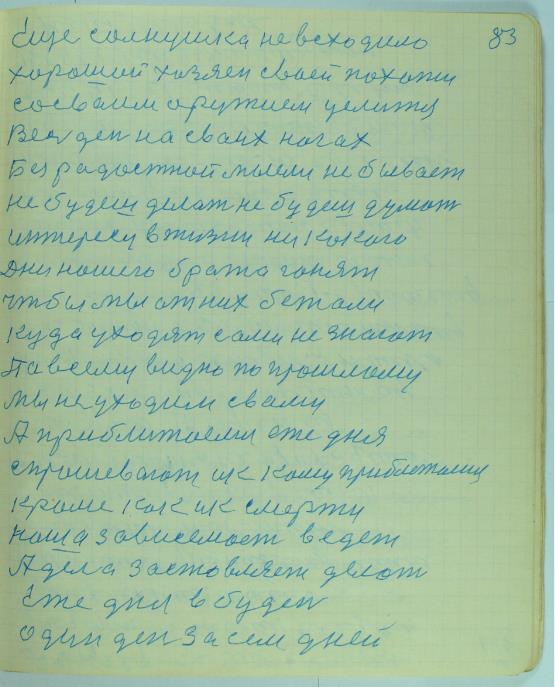 Еще солнушка не всходило 83
хороший хозяен своей похожи
сосвоим оружием целитця
Вес ден на своих ногах
Без радостной мысли не бывает
не будеш делат не будеш думат
интересу в жизни ни какого
Дни нашего брата гонят
чтобы мы от них бежали
Куда уходят сами не знают
Па всему видно по прошлому
мы не уходим свами
А приближаемы еже дня
спрошевают ик кому приближаимы
кроме как ик смерти
наша зависемост ведет
А дела заставляет делат
Еже дня в буден
один ден за сем дней